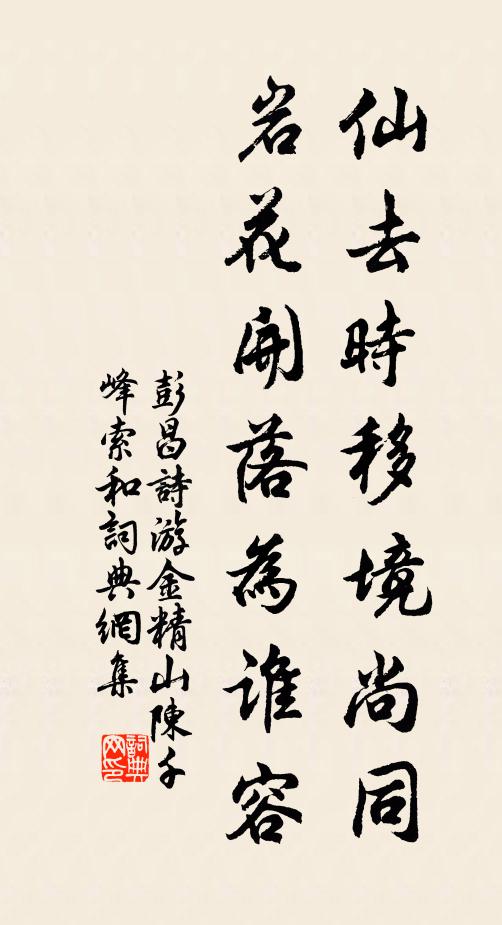 仙去時移境尚同
岩花開落為誰容
彭昌詩游金精山陳千
峰索和詞典網集
詞典
网印